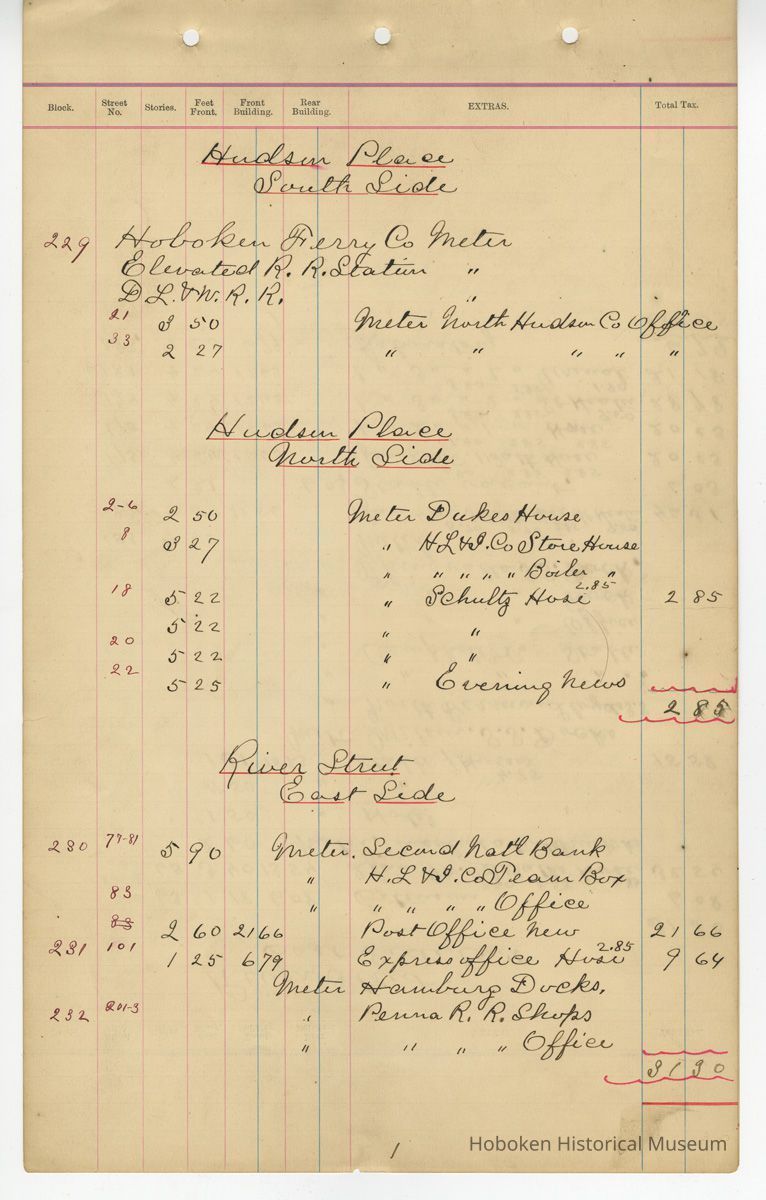 Block. Street No. Stories. Feet Front. Front Building. Rear Building. EXTRAS. Total Tax.
Hudson Place
South Side
229 Hoboken Ferry Co Meter
Elevated R. R. Station "
D L. & W. R. R. "
21 3 50 Meter North Hudson Co Office
33 2 27 " " " " "
Hudson Place
North Side
2-6 2 50 Meter Dukes House
8 3 27 " H L & I. Co Store House
" " " " " Boiler "
18 5 22 " Schultz Hose 2.85 2 85
5 22 " "
20 5 22 " "
22 5 25 " Evening News
2 85
River Street
East Side
230 77-81 5 90 Meter. Second Nat'l Bank
" H. L & I. Co Team Box
83 " " " " " Office
83 2 60 21 66 Post Office New 21 66
231 101 1 25 6 79 Express office Hose 2.85 9 64
Meter Hamburg Docks.
232 201-3 " Penna R. R. Shops
" " " " Office
31 30
1
Hoboken Historical Museum